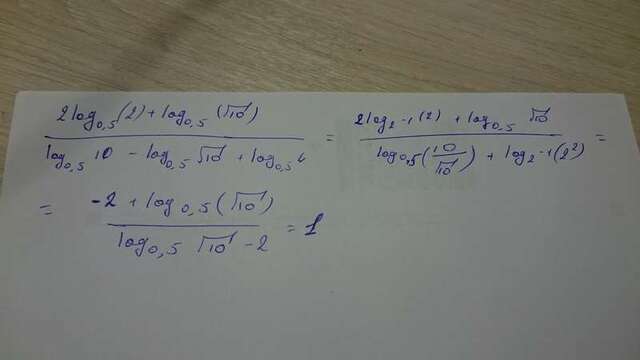 2log₀,₅(2) + log₀,₅(√10) / log₀,₅ 10 − log₀,₅ √10 + log₀,₅ 4 = 2log₂₋₁(2) + log₀,₅ √10 / log₀,₅(10/√10) + log₂₋₁(2²) =
= −2 + log₀,₅(√10) / log₀,₅ √10 − 2 = 1